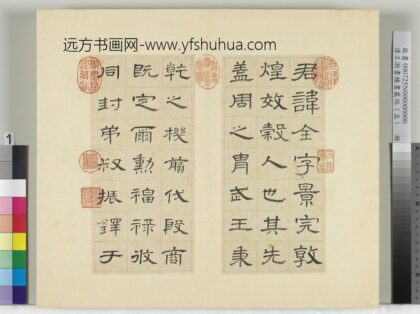 远方书画网-www.yfshuhua.com
君諱全字景完敦
煌效穀人也其先
蓋周之胄武王秉
乾之機翦代殷商
既定爾勳福祿攸
同封弟叔振鐸于
1